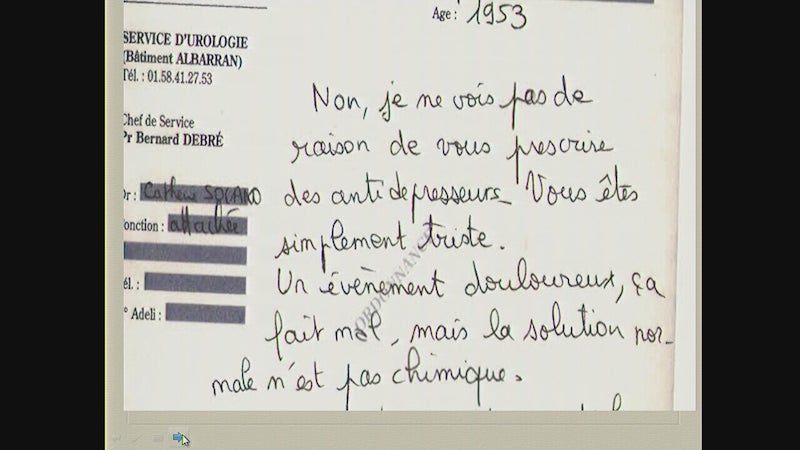 Age : 1953
SERVICE D'UROLOGIE
(Bâtiment ALBARRAN)
Tél. : 01.58.41.27.53
Chef de Service
Pr Bernard DEBRÉ
Dr : SOLANO
Fonction : attachée
Tél. :
N° Adeli :
ORDONNANCE
Non, je ne vois pas de
raison de vous prescrire
des antidepresseurs_ Vous êtes
simplement triste.
Un évènement douloureux, ça
fait mal, mais la solution nor-
male n'est pas chimique.